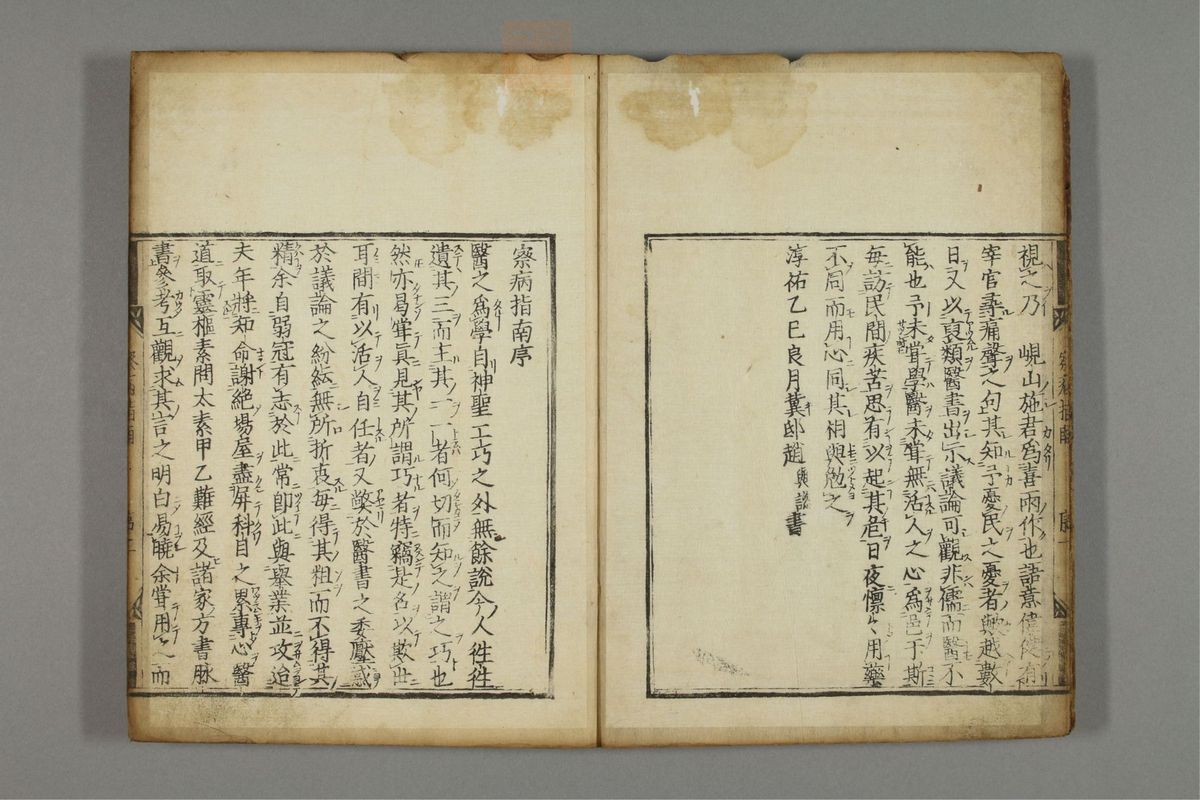 視之乃 峴山施君爲喜雨作也語意偉俊有
宰官尋痛聲之句其知予憂民之憂者歟越數
日又以裒類醫書出示議論可觀非儒而醫不
能也予未嘗學醫未嘗無活人之心爲邑于斯
每訪民間疾苦思有以起其危日夜懍々用藥
不同而用心同其相與勉之
淳祐乙巳良月冀邸趙與諮書
察病指南序
醫之爲學自神聖工巧之外無餘説今人徃徃
遺其三而主其一一者何切而知之謂之巧也
然亦曷甞眞見其所謂巧者特竊是名以欺世
耳間有以活人自任者又弊於醫書之委壓惑
於議論之紛紜無所折衷毎得其粗而不得其
精余自弱冠有志於此常即此與舉業並攻迨
夫年將知命謝絶場屋盡屏科目之累專心醫
道取靈樞素問太素甲乙難經及諸家方書脉
書參考互觀求其言之明白易曉余甞用之而